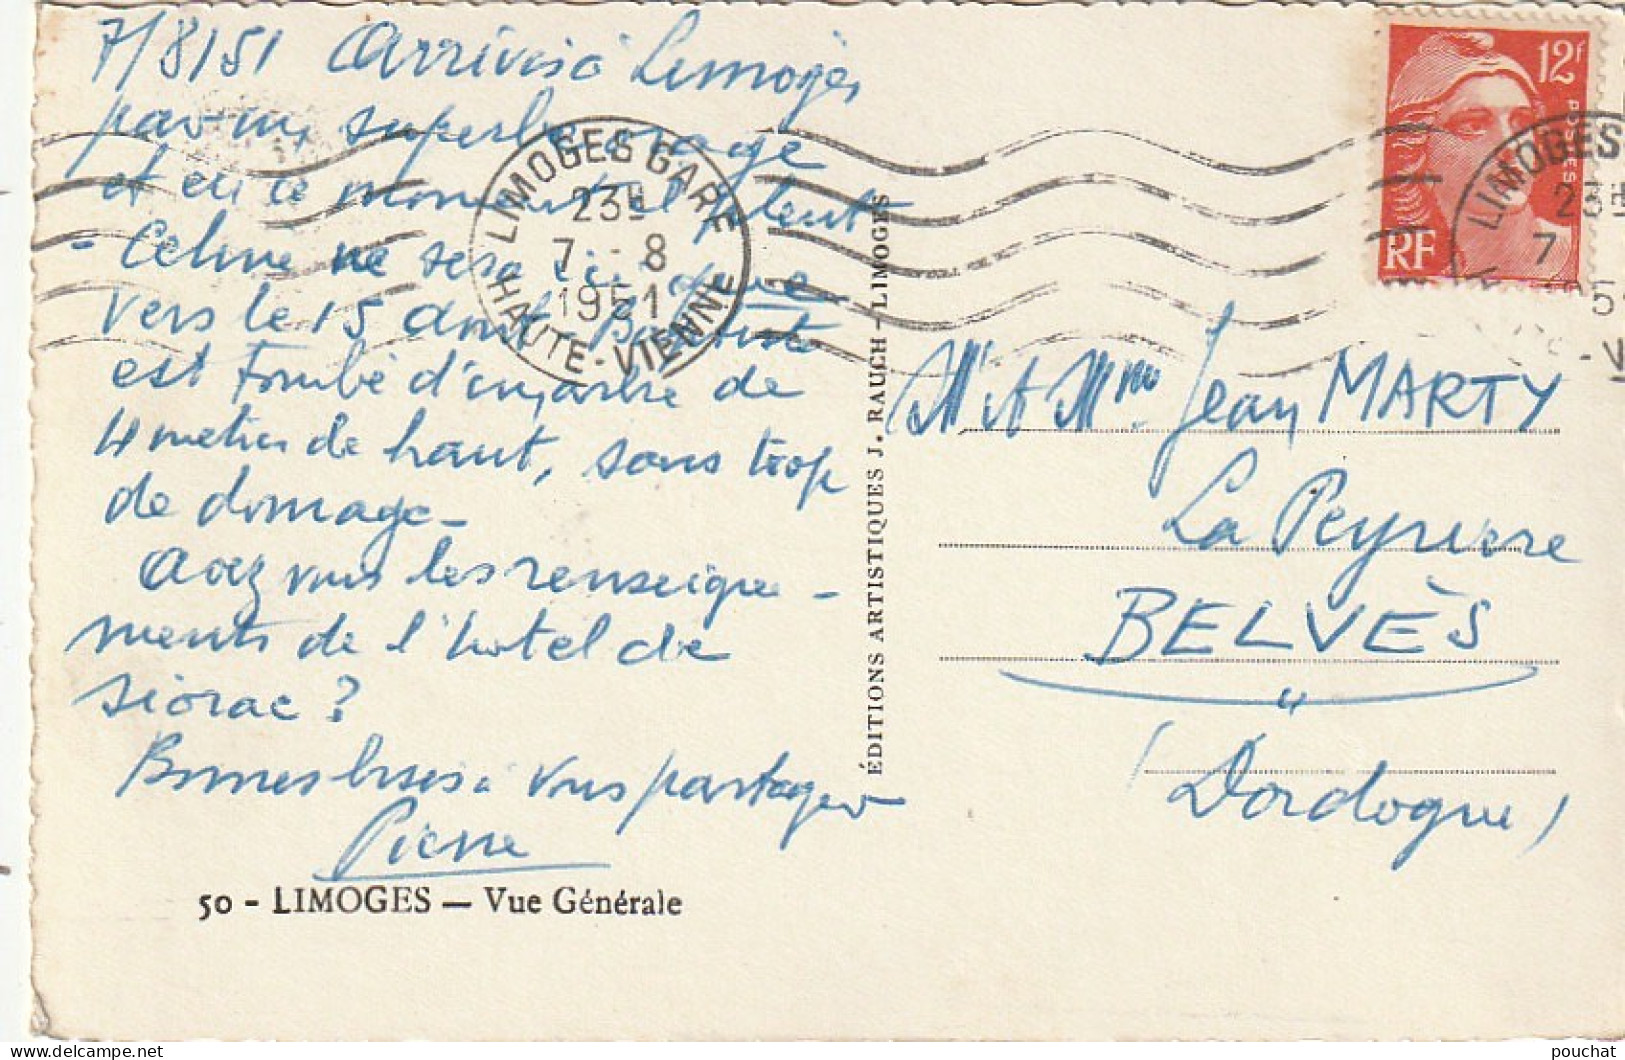 7/8/51 Arrivés à Limoges
par un superbe orage
et en ce moment il pleut
- Céline ne sera ici que
vers le 15 dont Baptiste
est tombé d'un arbre de
4 mètres de haut, sans trop
de domage -
Avez vous les renseigne -
ments de l'hotel de
siorac ?
Bonnes bises à vous partager
Pierre
50 - LIMOGES — Vue Générale
ÉDITIONS ARTISTIQUES J. RAUCH - LIMOGES
LIMOGES GARE
23H
7 - 8
1951
HAUTE-VIENNE
12F
POSTES
RF
LIMOGES
23H
7
M. et Mme Jean MARTY
La Peyrière
BELVÈS
(Dordogne)
pouchat